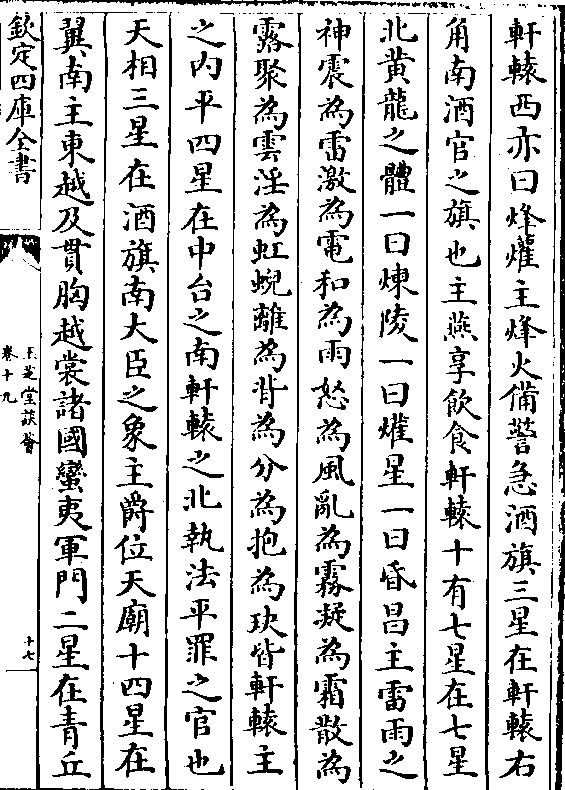 軒轅西亦曰烽爟主烽火備警急酒旗三星在軒轅右
角南酒官之旗也主燕享飲食軒轅十有七星在七星
北黄龍之體一曰煉陵一曰爟星一曰昏昌主雷雨之
神震為雷激為電和為雨怒為風亂為霧凝為霜散為
露聚為雲淫為虹蜺離為背為分為抱為玦皆軒轅主
之内平四星在中台之南軒轅之北執法平罪之官也
天相三星在酒旗南大臣之象主爵位天廟十四星在
翼南主東越及貫胸越裳諸國蠻夷軍門二星在青丘
欽定四庫全書
玉芝堂談薈
卷十九
十七